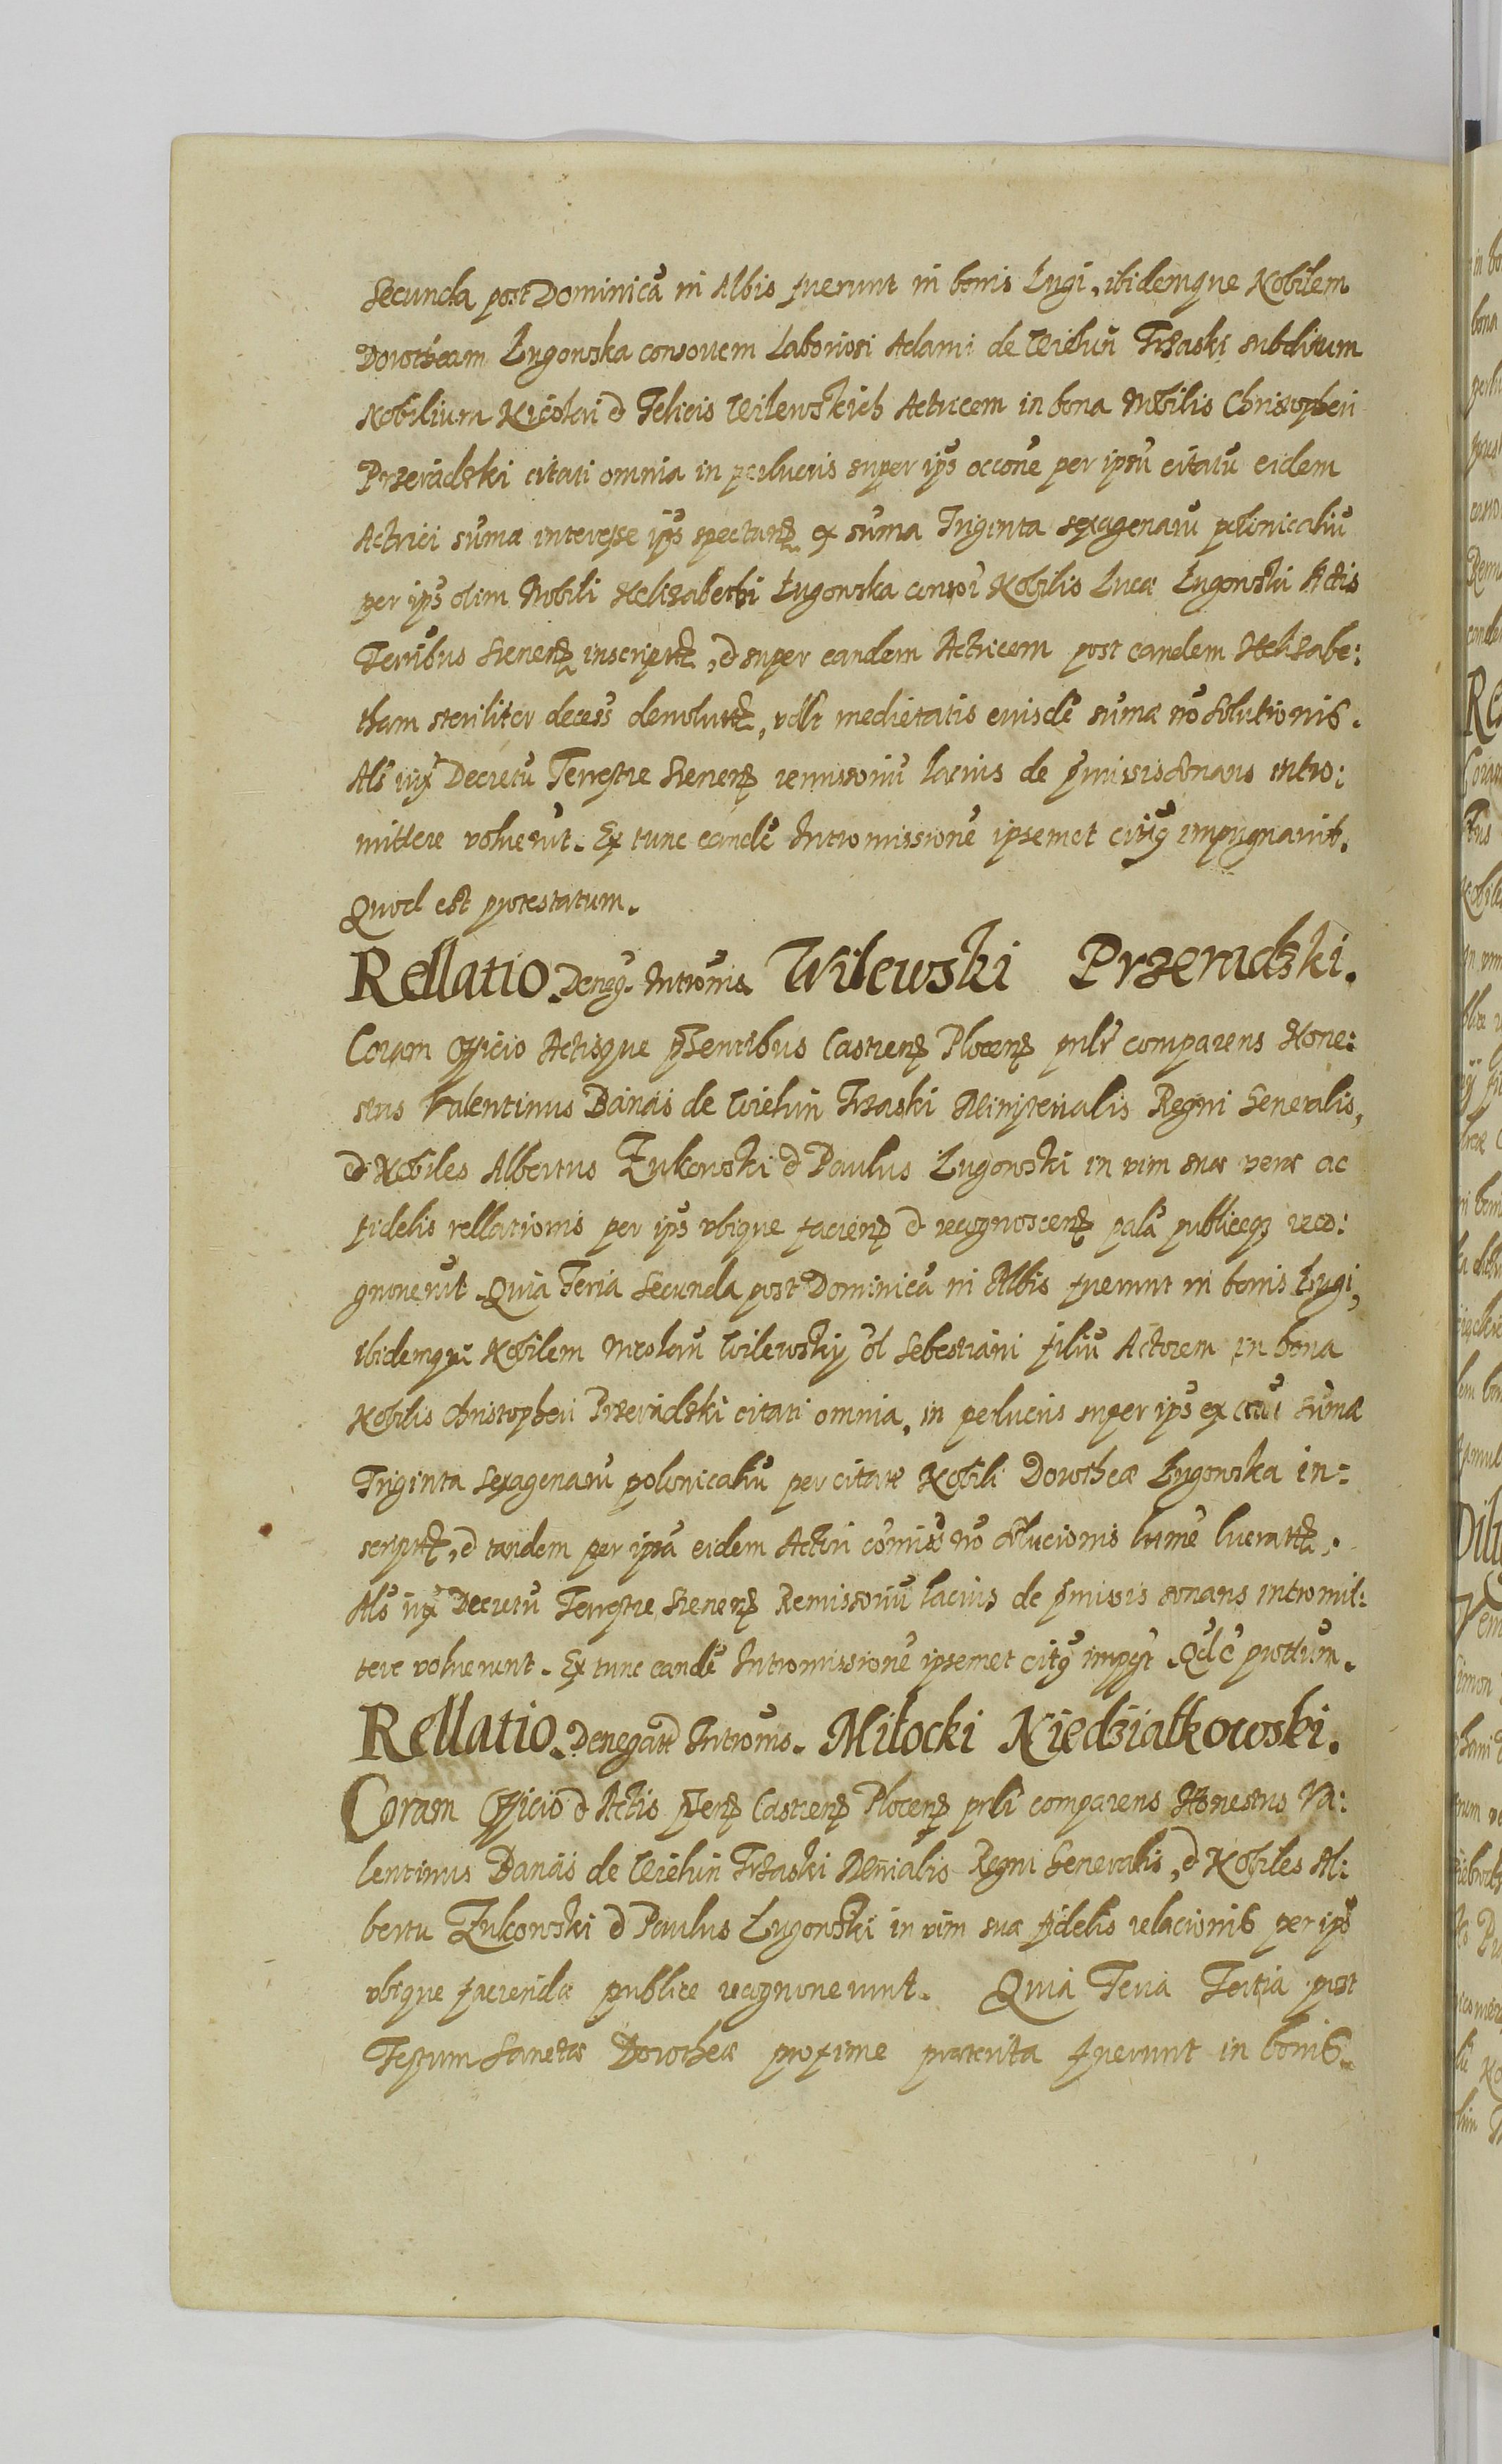 Secunda post Dominicã in Albis fuerunt in bonis Lugi, ibidemque Nobilem
Dorotheam Lugowska consortem Laboriosi Adami de Wiehun Trzaski subditum
Nobilium Nicolai et Felicis Wilewskich Actricem in bona Nobilis Christopheri
Przeradzki citati omnia in perlucris super ips̃ occõne per ipsũ citatũ eidem
Actrici sũma interesse ips̃ spectanᵗ ex sũma Triginta sexagenarũ polonicaliũ
per ips̃ olim Nobili Helizabethi Lugowska consoi Nobilis Luca Lugowski Actis
Terrĩbus Srenenꝭ inscriptꝭ, et super eandem Actricem post eandem Helizabe:
tham steriliter decess̃ devolutꝭ, vdlt medietatis eiusdẽ sũma nõ Solutionis.
Als̃ iux̃ Decretũ Terrestre Srenenꝭ remissoriũ lacius de p̃missis sonans intro:
mittere voluerũt. Ex tunc eandẽ Intromissionẽ ipsemet citũs impugnavit.
Quod est protestatum.
Rellatio Deneg. Intromis. Wilewski Przeradzki.
Coram Officio Actisque p̃sentibus Castrenꝭ Plocenꝭ prsl̃r comparens Hone:
stus Valentinus Banas de Wiehun Trzaski Ministerialis Regni Generalis,
et Nobiles Albertus Zukowski et Paulus Lugowski in vim sua vera ac
fidelis rellationis per ips̃ ubique facienꝭ et recognoscenꝭ palã publiceqꝫ reco:
gnoverũt. Quia Feria Secunda post Dominicã in Albis fuerunt in bonis Lugi,
ibidemque Nobilem Nicolaũ Wilewskiÿ ol Sebestiani filiũ Actorem in bona
Nobilis Christopheri Przeradzki citati omnia, in perlucris super ips̃ ex sũma
Triginta Sexagenarũ polonicaliũ per citatꝭ Nobili Dorothea Lugowska in=
scriptꝭ, et tandem per ipsã eidem Actori cõmiss̃ nõ solucionis
Als̃ iux̃ Decretũ Terrestre Srenenꝭ Remissoriũ lacius de p̃missis sonans intromit:
tere voluerunt. Ex tunc eandẽ Intromissionẽ ipsemet citꝰ impꝯt. Qd̃ ẽ prottum.
Rellatio Denegatꝭ Intromis. Miłocki Niedziałkowski.
Coram Officio et Actis p̃senꝭ Castrenꝭ Plocenꝭ prsl̃i comparens Honestus Va:
lentinus Banas de Wiehun Trzaski Mñrialis Regni Generalis, et Nobiles Al:
bertu Zukowski et Paulus Lugowski in vim sua fidelis relacionis per ips̃
ubique facienda publice recognoverunt. Quia Feria Tertia post
Festum Sancta Dorothea proxime praeterita fuerunt in bonis